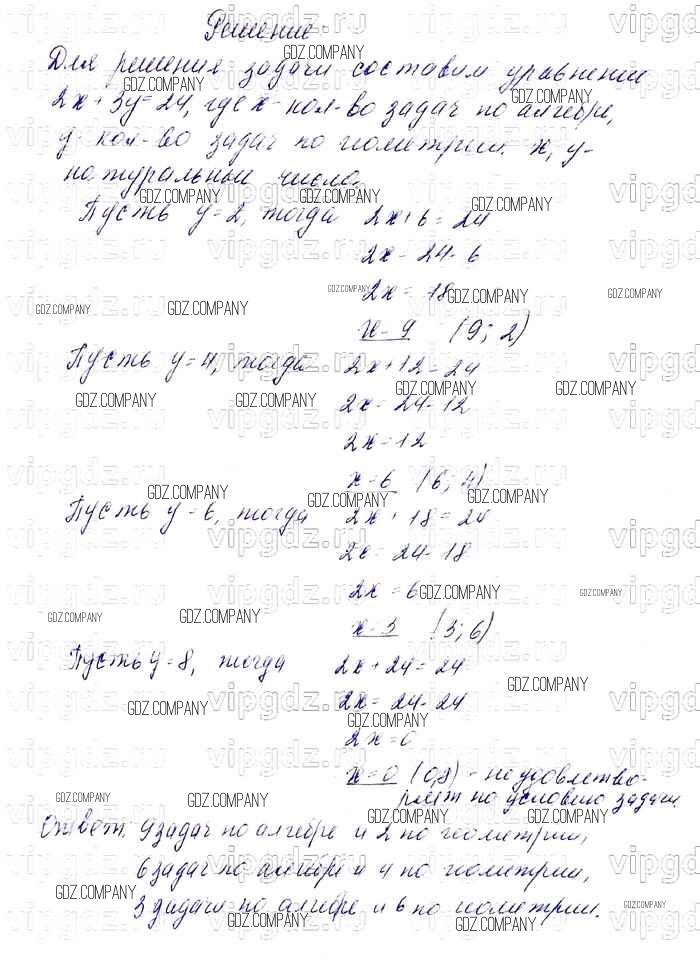 Решение:
Для решения задачи составим уравнение
2x + 3y = 24, где x - кол-во задач по алгебре,
y - кол-во задач по геометрии. x, y -
натуральные числа.
Пусть y = 2, тогда 2x + 6 = 24
2x = 24 - 6
2x = 18
x = 9 (9; 2)
Пусть y = 4, тогда 2x + 12 = 24
2x = 24 - 12
2x = 12
x = 6 (6; 4)
Пусть y = 6, тогда 2x + 18 = 24
2x = 24 - 18
2x = 6
x = 3 (3; 6)
Пусть y = 8, тогда 2x + 24 = 24
2x = 24 - 24
2x = 0
x = 0 (0,8) - не удовлетво-
ряет по условию задачи.
Ответ: 9 задач по алгебре и 2 по геометрии,
6 задач по алгебре и 4 по геометрии,
3 задачи по алгебре и 6 по геометрии.
GDZ.COMPANY
vipgdz.ru